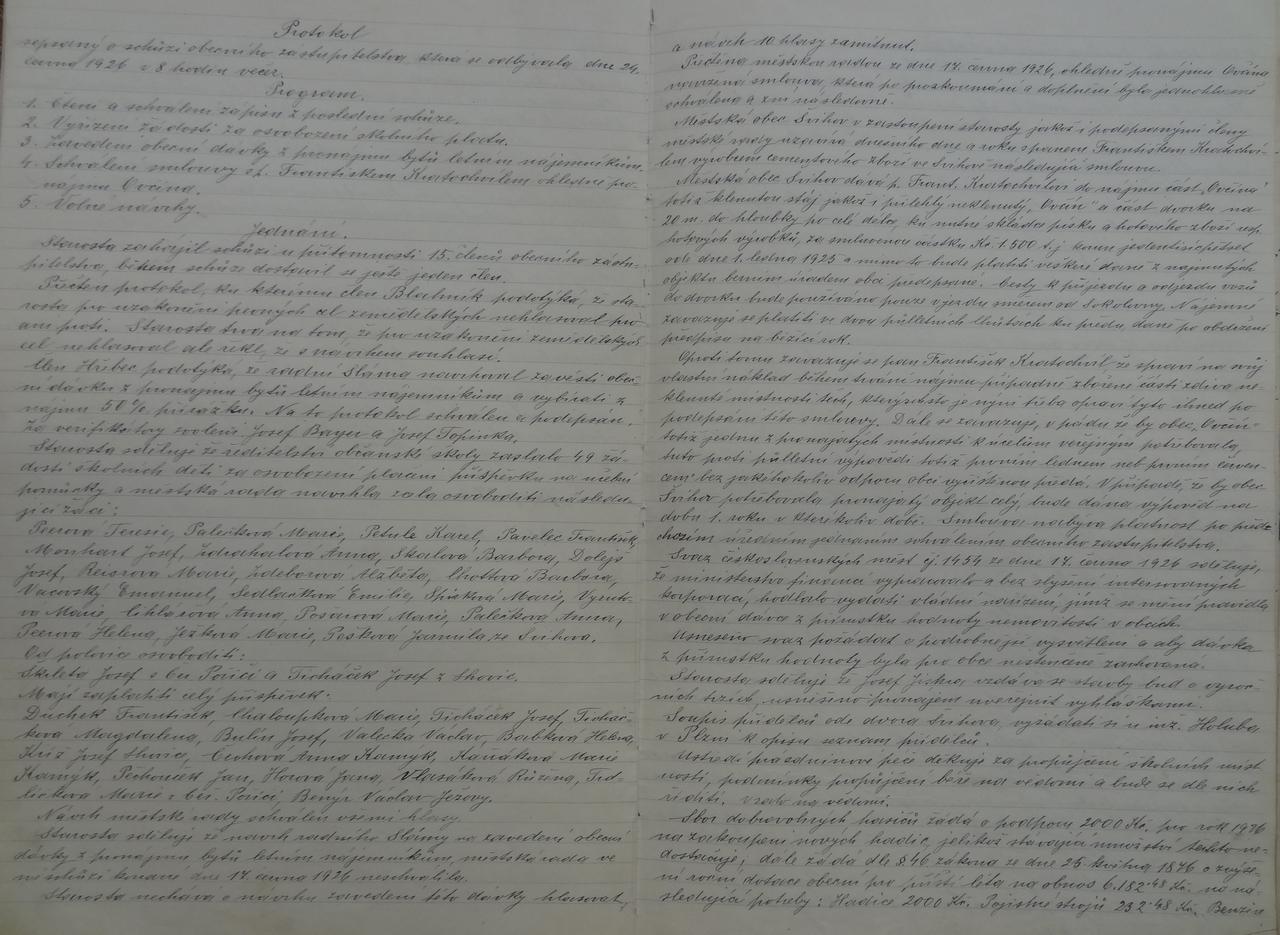 Protokol
sepsaný o schůzi obecního zastupitelstva, která se odbývala dne 24.
června 1926 v 8 hodin večer.
Program.
1. Čtení a schválení zápisu z poslední schůze.
2. Vyřízení žádostí za osvobození školního platu.
3. Zavedení obecní dávky z pronájmu bytů letním nájemníkům.
4. Schválení smlouvy s p. Františkem Kratochvílem ohledně pro-
nájmu Ovčína.
5. Volné návrhy.
Jednání.
Starosta zahájil schůzi u přítomnosti 15. členů obecního zastu-
pitelstva, během schůze dostavil se ještě jeden člen.
Přečten protokol, ku kterému člen Blahník podotýká, že sta-
rosta pro uzákonění pevných cel zemědělských nehlasoval pro
ani proti. Starosta trvá na tom, že pro uzákonění zemědělských
cel nehlasoval ale řekl, že s návrhem souhlasí.
Člen Hříbec podotýká, že radní Sláma navrhoval zavésti obec-
ní dávku z pronájmu bytů letním nájemníkům a vybírati z
nájmu 50% přirážku. Na to protokol schválen a podepsán.
Za verifikátory zvoleni Josef Bayer a Josef Topinka.
Starosta sděluje že ředitelství občanské školy zaslalo 49 žá-
dostí školních dětí za osvobození placení příspěvku na učební
pomůcky a městská rada navrhla zcela osvoboditi následu-
jící žáci:
Peerová Terezie, Palečková Marie, Petule Karel, Pavelec František,
Monhart Josef, Zdrahalová Anna, Skalová Barbora, Dolejš
Josef, Reisrová Marie, Zdeborová Alžběta, Chottová Barbora,
Vacovský Emanuel, Sedláčková Emilie, Spěváková Marie,
vá Marie, Cihlářová Anna, Posarová Marie, Palečková Anna,
Peerová Helena, Ježková Marie, Pešková Jarmila ze Švihova.
Od polovic osvoboditi:
Skleta Josef z Čer. Poříčí a Ticháček Josef z Lhovic.
Mají zaplatiti celý příspěvek:
Duchek František, Chaloupková Marie, Ticháček Josef, Ticháč-
ková Magdalena, Bulín Josef, Valečka Václav, Babková Helena,
Kříž Josef Lhovic, Čechová Anna Kamýk, Kaňáková Marie
Kamýk, Pechouček Jan, Horová Jana, Vlasáková Růžena, Jed-
ličková Marie z Čer. Poříčí, Benýr Václav Jezovy.
Návrh městsk. rady schválen všemi hlasy.
Starosta sděluje že návrh radního Slámy na zavedení obecní
dávky z pronájmu bytů letním nájemníkům, městská rada ve
své schůzi konané dne 17. června 1926 neschválila.
Starosta nechává o návrhu zavedení této dávky hlasovat,
a návrh 10 hlasy zamítnut.
Přečtena městskou radou ze dne 17. června 1926, ohledně pronájmu Ovčína
navržená smlouva, která po prozkoumání a doplnění byla jednohlasně
schválena a zní následovně.
Městská obec Švihov v zastoupení starosty jakož i podepsanými členy
městské rady uzavírá dnešního dne a roku s panem Františkem Kratochví-
lem výrobcem cementového zboží ve Švihově následující smlouvu.
Městská obec Švihov dává p. Frant. Kratochvílovi do nájmu část „Ovčína“
totiž klenutou stáj jakož i přilehlý neklenutý „Ovčín“ a část dvorku na
20 m. do hloubky po celé délce, ku nutné skládce písku a hotového zboží resp.
hotových výrobků, za smluvenou částku Kč 1.500 t. j. korun jedentisícpětset
ode dne 1. ledna 1925 a mimo to bude platiti veškeré daně z najmutých
objektů berním úřadem obci předepsané. Cesty k příjezdu a odjezdu vozů
do dvorku bude používáno pouze vjezdu směrem od Sokolovny. Nájemné
zavazuje se platiti ve dvou půlletních lhůtách ku předu, daně po obdržení
předpisu na běžící rok.
Oproti tomu zavazuje se pan František Kratochvíl, že spraví na svůj
vlastní náklad během trvání nájmu případné zbořené části zdiva ne-
klenuté místnosti těch, kterýchžto je nyní třeba opraví tyto ihned po
podepsání této smlouvy. Dále se zavazuje, v pádu že by obec „Ovčín“
totiž jednu z pronajatých místností k účelům veřejným potřebovala,
tuto proti půlletní výpovědi totiž prvním lednem neb prvním červen-
cem bez jakéhokoliv odporu obci vyklizenou předá. V případě, že by obec
Švihov potřebovala pronajatý objekt celý, bude dána výpověď na
dobu 1. roku v kterékoliv době. Smlouva nabývá platnost po před-
chozím úředním jednaním schválením obecního zastupitelstva.
Svaz československých měst čj. 1454 ze dne 17. června 1926 sděluje,
že ministerstvo financí vypracovalo a bez slyšení interesovaných
korporací, hodlalo vydati vládní nařízení, jímž se mění pravidla
v obecní dávce z přírustku hodnoty nemovitostí v obcích.
Usneseno svaz požádat o podrobnější vysvětlení a aby dávka
z přírustku hodnoty byla pro obce neztenčeně zachována.
Starosta sděluje že Josef Jiskra, vzdává se stavby bud o výroč-
ních trzích, usneseno pronájem uveřejnit vyhláškami.
Soupis přídělců ode dvora Švihova, vyžádati si u inž. Holuba
v Plzni k opisu seznam přídělců.
Ústředí prázdninové péče děkuje za propůjčení školních míst-
ností, podmínky propůjčení béře na vědomí a bude se dle nich
říditi. Vzato na vědomí.
Sbor dobrovolných hasičů žádá o podporu 2000 Kč. pro rok 1926
na zakoupení nových hadic, jelikož stávající množství těchto ne-
dostačuje; dále žádá dle § 46 zákona ze dne 25 května 1876 o zvýše-
ní roční dotace obecní pro příští léta na obnos 6.182·48 Kč. na ná-
sledující potřeby: Hadice 2000 Kč. Pojistné strojů 232·48 Kč. Benzin